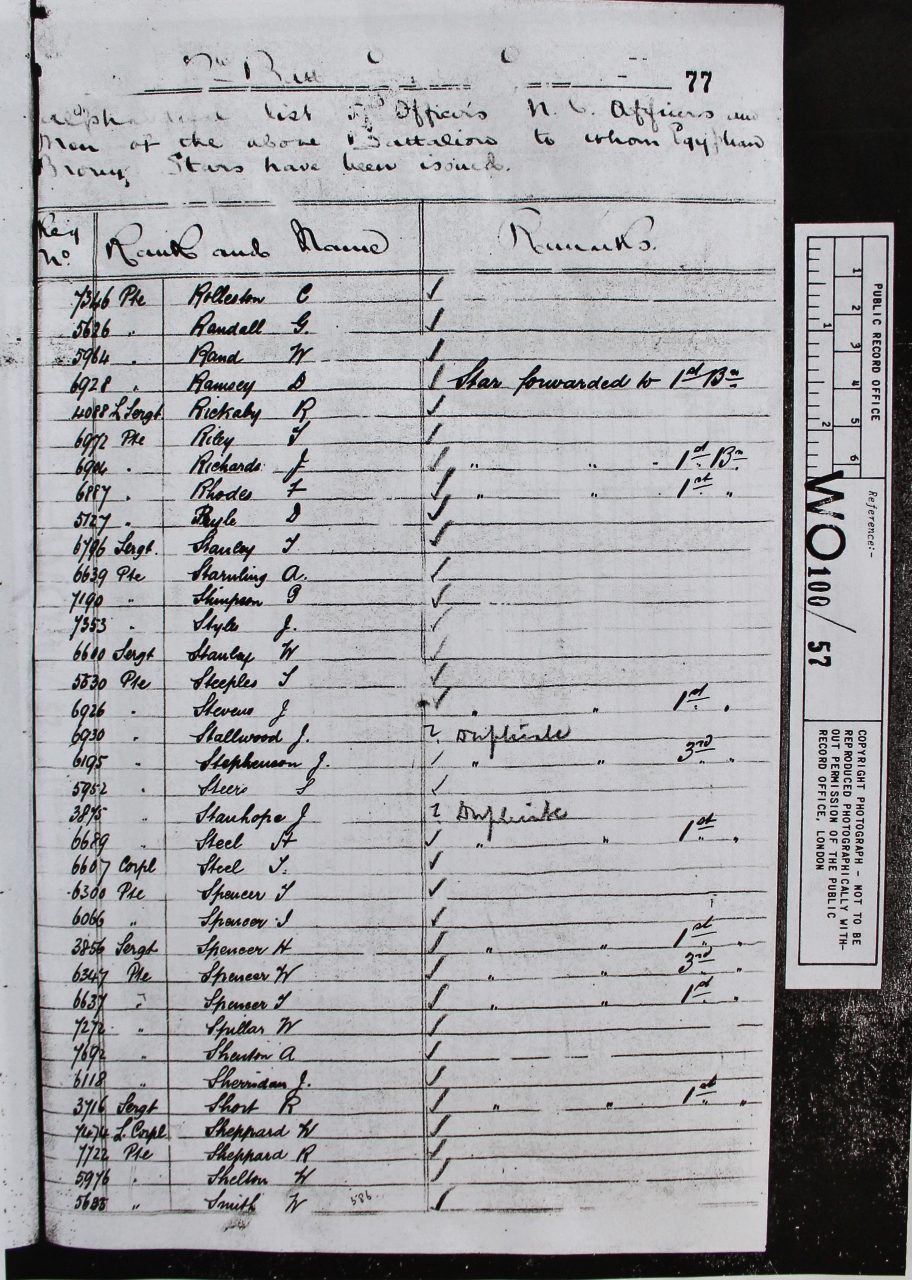 77
list of Officers N. C. Officers and
Men of the above Battalion to whom Egyptian
Bronze Stars have been issued.
Reg
No. Rank and Name Remarks.
7346 Pte Rolleston C ✓
5626 " Randall G. ✓
5964 " Rand W ✓
6928 " Ramsey D ✓ Star forwarded to 1st Bn
4088 L Sergt Rickaby R ✓
6972 Pte Riley T ✓
6904 " Richards J ✓ " " 1st Bn
6887 " Rhodes F ✓ " " 1st "
5727 " Ryle D ✓
6796 Sergt. Stanley T ✓
6639 Pte Starnling A. ✓
7190 " Stimpson G ✓
7353 " Style J. ✓
6600 Sergt Stanley W ✓
5530 Pte Steeples T ✓
6926 " Stevens J ✓ " " 1st "
6930 " Stallwood J. ? Duplicate
6195 " Stephenson J. ✓ " " 3rd "
5952 " Steers S ✓
3875 " Stanhope J ? Duplicate
6689 " Steel H ✓ " " 1st "
6607 Corpl Steel T. ✓
6300 Pte Spencer T ✓
6066 " Spencer I ✓
3856 Sergt Spencer H ✓ " " 1st "
6347 Pte Spencer W ✓ " " 3rd "
6637 " Spencer T ✓ " " 1st "
7272 " Spillar W ✓
7692 " Shenton A ✓
6118 " Sherridan J. ✓
3716 Sergt Short R ✓ " " 1st "
7474 L. Corpl Sheppard W ✓
7722 Pte Sheppard R ✓
5976 " Shelton W ✓
5685 " Smith W 586 ✓
PUBLIC RECORD OFFICE
1 2 3 4 5 6
1 2
Reference:-
WO 100/57
COPYRIGHT PHOTOGRAPH - NOT TO BE
REPRODUCED PHOTOGRAPHICALLY WITH-
OUT PERMISSION OF THE PUBLIC
RECORD OFFICE, LONDON